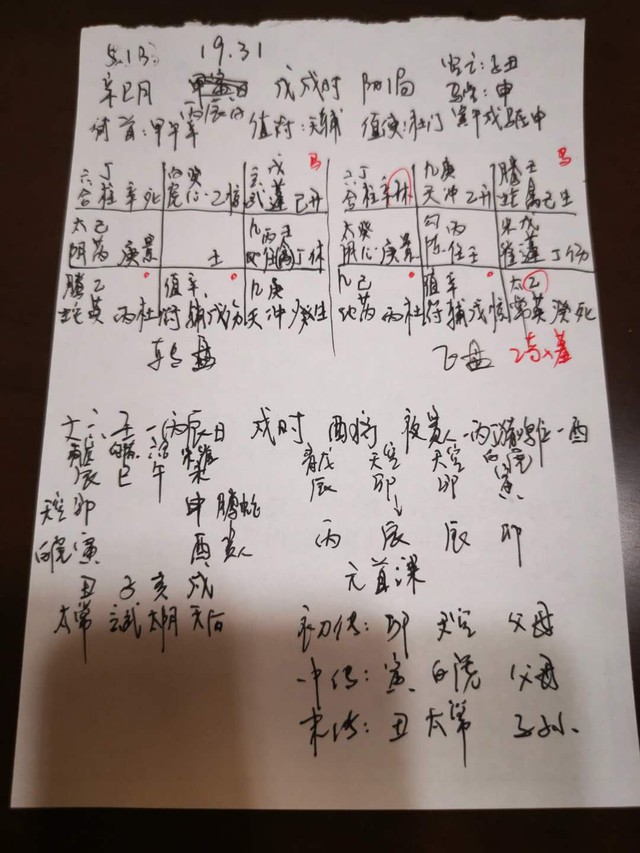 5.13: 19.31
辛巳月 丙辰日 戊戌时 阳1局 空亡:子丑
马星:申
符首:甲午辛 值符:天辅 值使:杜门 寅午戌马在申
六 丁 白 癸 玄 戊 马 六 丁 九 庚 腾 壬 马
合 柱 辛 死 虎 心 乙 武 蓬 己 开 合 柱 辛 休 天 冲 乙 开 蛇 禽 己 生
太 己 九 丙 壬 太 癸 勾 丙 朱 戊
阴 芮 庚 景 壬 地 任 禽 丁 休 阴 心 庚 景 陈 任 壬 雀 蓬 丁 伤
腾 乙 值 辛 九 庚 九 己 值 辛 太 乙
蛇 英 丙 杜 符 辅 戊 伤 天 冲 癸 生 地 芮 丙 杜 符 辅 戊 常 英 癸 死
转盘 飞盘
丙辰日 戌时 酉将 夜贵人 酉
辰 巳 午 未 青龙 天空 天空 白虎
辰 卯 卯 寅
天空 卯 申 腾蛇
丙 辰 辰 卯
白虎 寅 酉 贵人
元首课
丑 子 亥 戌
太常 玄武 太阴 天后
初传: 卯 天空 父母
中传: 寅 白虎 父母
末传: 丑 太常 子孙